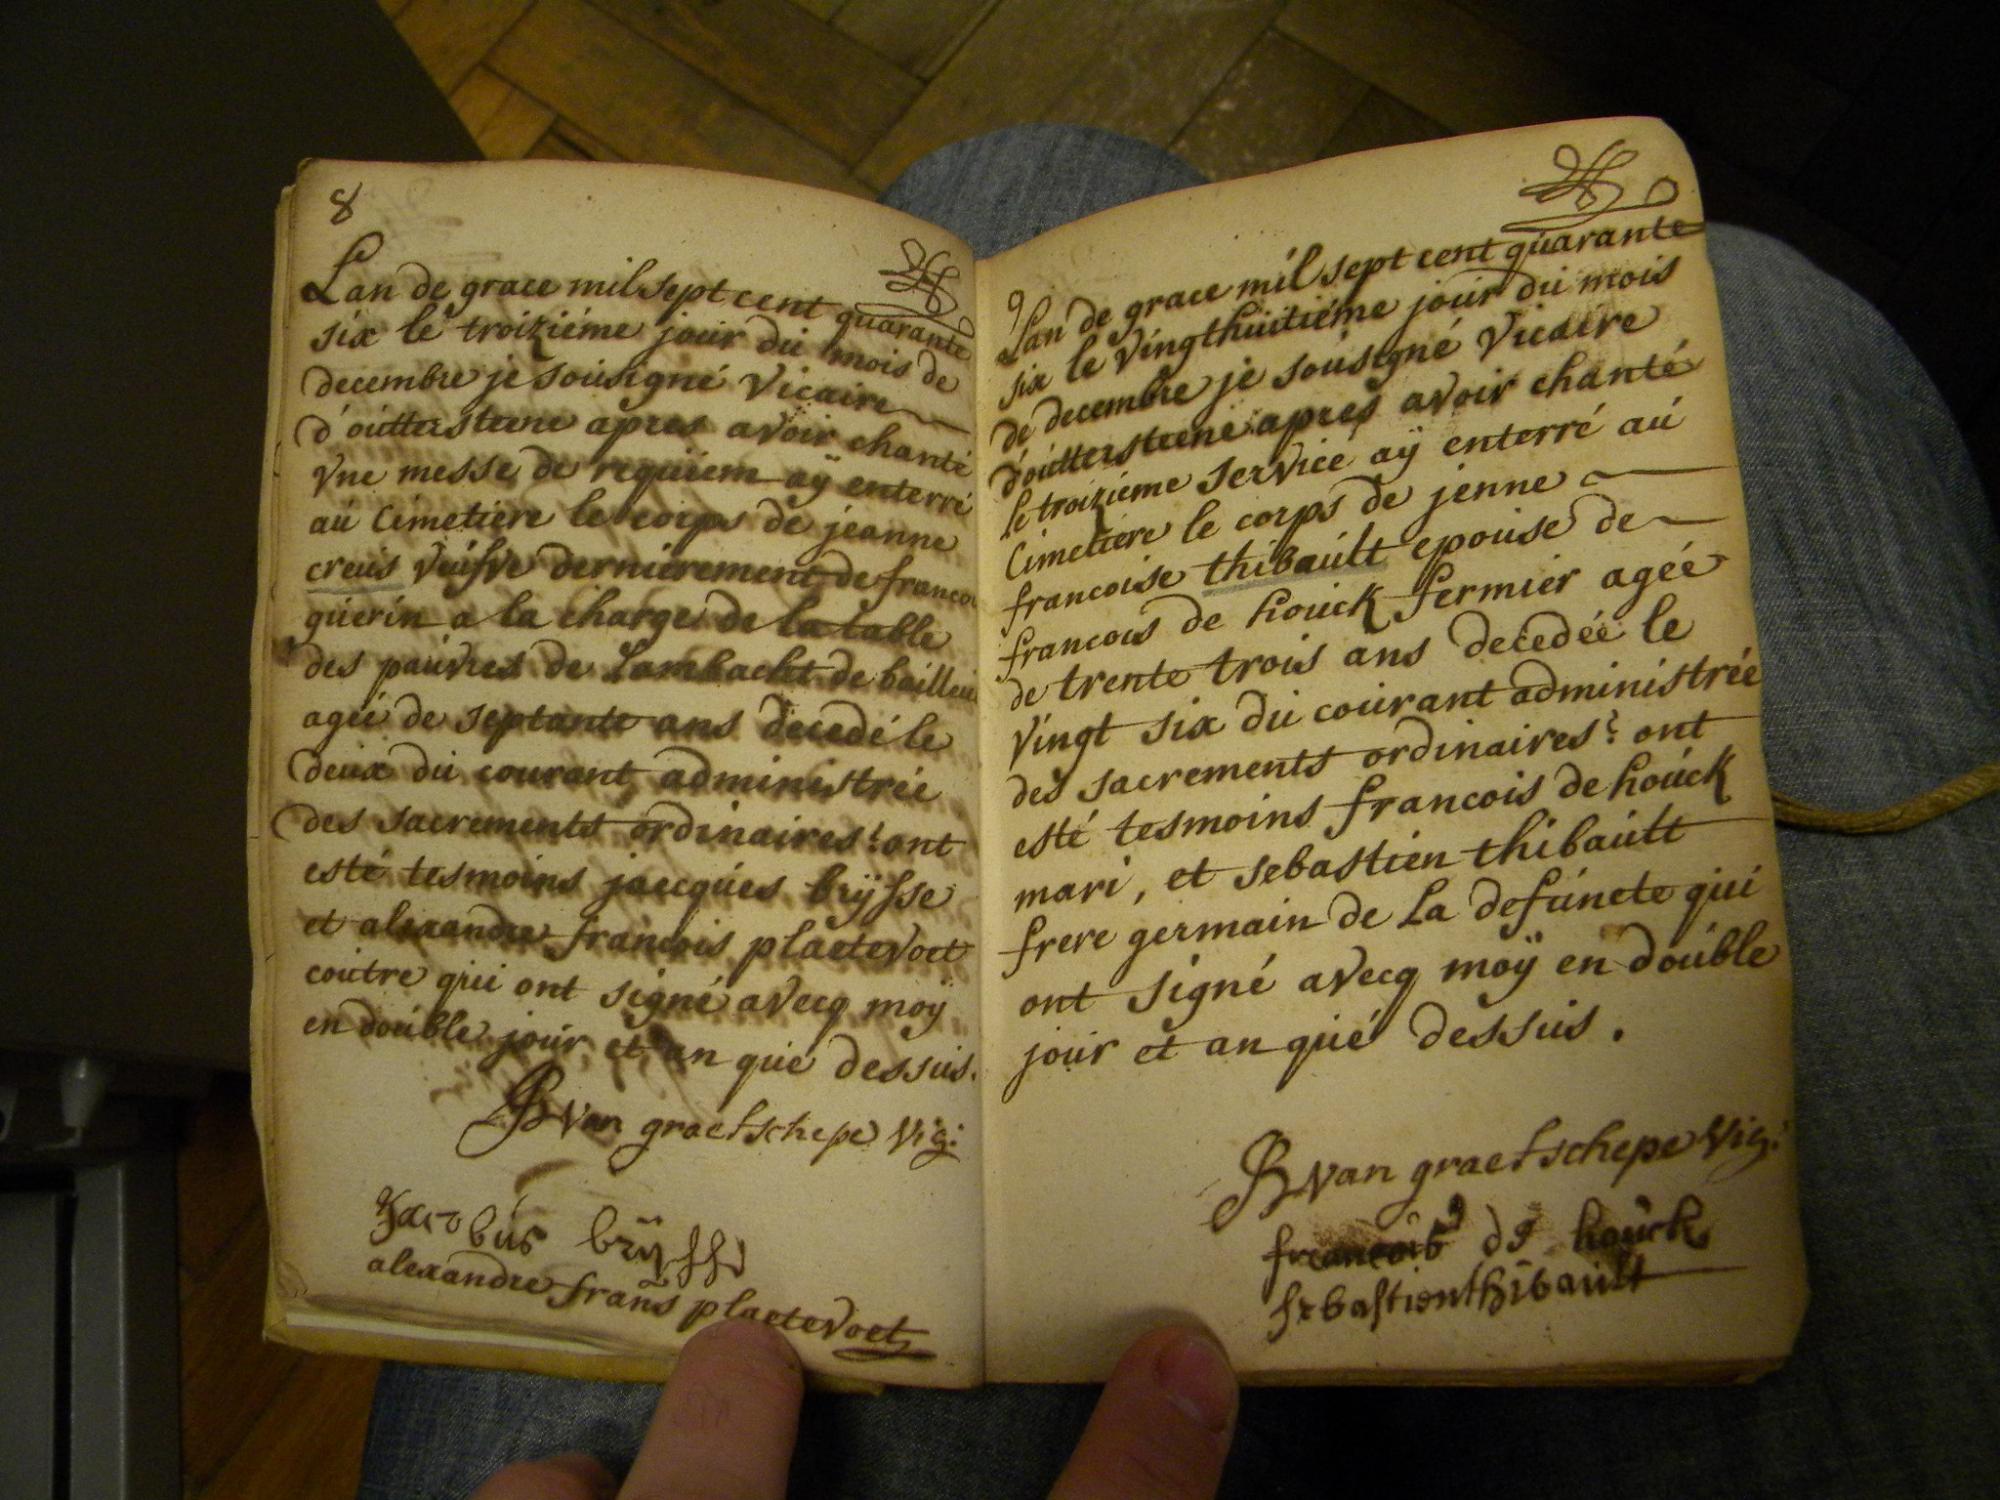 8
Lan de grace mil sept cent quarante
six le troiziéme jour du mois de
decembre je sousigné Vicaire
d'outtersteene apres avoir chanté
Vne messe de requiem aÿ enterré
au Cimetiere le corps de jeanne
creus Veufve dernierement de francois
guerin a la charge de la table
des pauvres de Lambacht de bailleul
ageé de septante ans decedé le
deux du courant administrée
des sacrements ordinaires: ont
esté tesmoins jacques brÿsse
et alexandre francois plaetevoet
coutre qui ont signé avecq moÿ
en double jour et an que dessus.
JB Van graefschepe Vig:
Jacobus brÿsse
alexandre frans plaetevoet
9
Lan de grace mil sept cent quarante
six le Vingthuitiéme jour du mois
de decembre je sousigné Vicaire
d'outtersteene apres avoir chanté
le troizieme service aÿ enterré au
Cimetiere le corps de jenne
francoise thibault epouse de
francois de houck fermier ageé
de trente trois ans decedée le
Vingt six du courant administrée
des sacrements ordinaires: ont
esté tesmoins francois de houck
mari, et sebastien thibault
frere germain de La defuncte qui
ont signé avecq moÿ en double
jour et an que dessus.
JB Van graefschepe Vig:
francois de houck
sebastien thibault